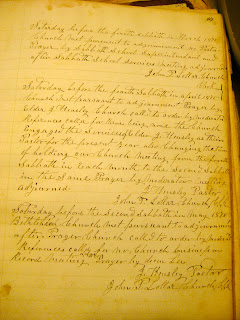 Saturday before the fourth Sabbath in March 1880
Church met pursuant to adjournment
Prayer by Sabbath School Superintendent and
after Sabbath School Services meeting adjourned
John T. Lollar Church
Clerk
Saturday before the fourth Sabbath in April 1880
Church met pursuant to adjournment Prayer by
Elder J. Church called to order by moderator
References called for none being and the Church
Engaged the Services of Elder J. as their
Pastor for the present year also Changing the time
of holding our Church meeting from the fourth
Sabbath in Each month to the Second Sabbath
in the Same Prayer by moderator meeting
adjourned
J. Pastor
John T. Lollar Church Clk
Saturday before the Second Sabbath in May 1880
Bethlehem Church met pursuant to adjournment
after Prayer Church called to order by
References called for no Church business on
Record meeting Prayer by
J. Pastor
John T. Lollar Church Clk